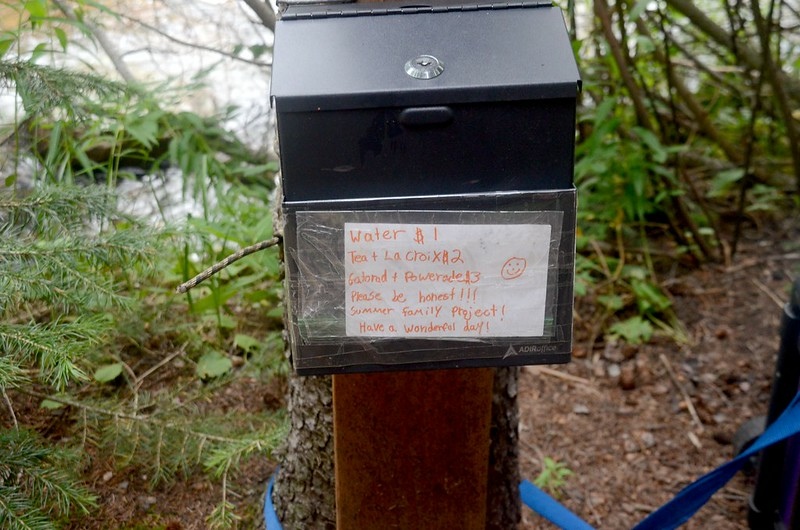 Water $1
Tea + La Croix $2
Gatorad + Powerade $3
Please be honest!!!
Summer family Project!
Have a wonderful day!
ADIRoffice